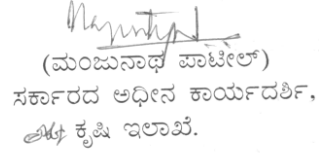 (ಮಂಜುನಾಥ ಪಾಟೀಲ್)
ಸರ್ಕಾರದ ಅಧೀನ ಕಾರ್ಯದರ್ಶಿ,
ಕೃಷಿ ಇಲಾಖೆ.